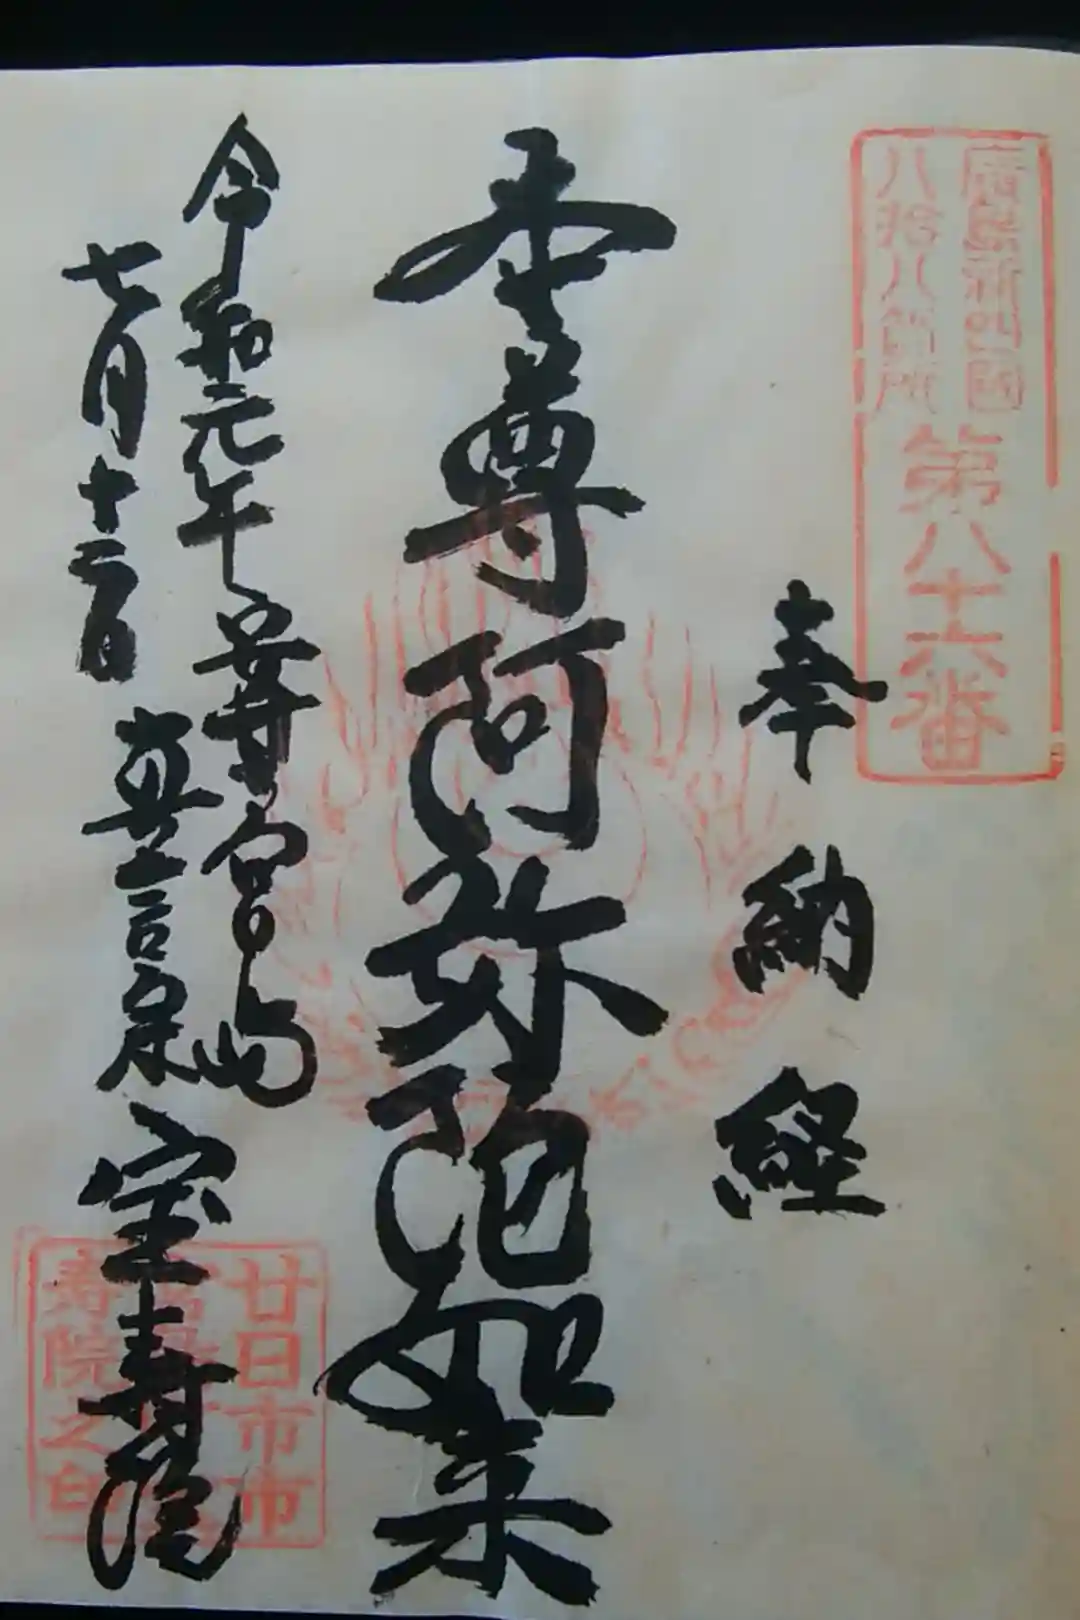 廣島新四國
八拾八箇所
第八十六番
奉納経
本尊阿弥陀如来
令和元年 安芸宮島
七月十二日 真言宗
宝寿院
廿日市市
寿院之印